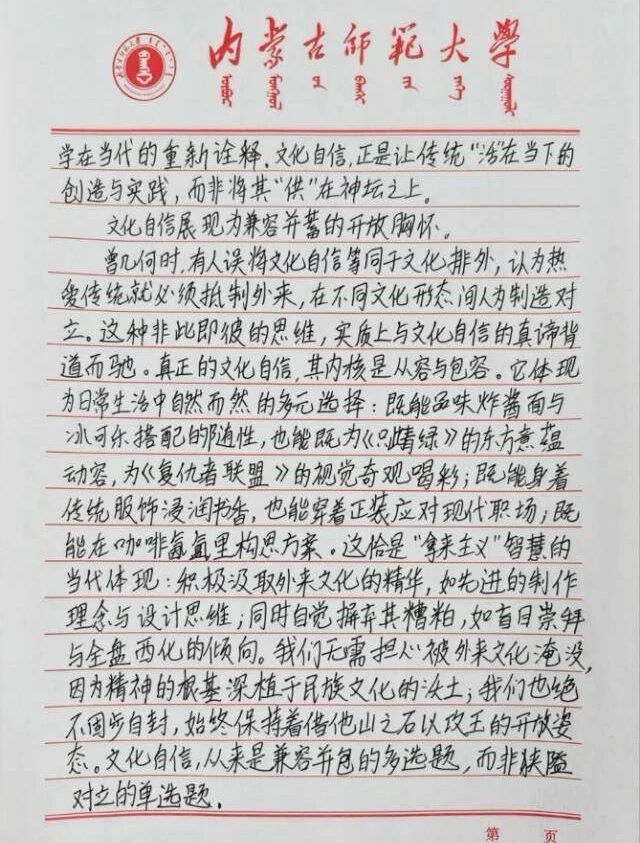 内蒙古师范大学
学在当代的重新诠释。文化自信,正是让传统“活”在当下的
创造与实践,而非将其“供”在神坛之上。
文化自信展现为兼容并蓄的开放胸怀。
曾几何时,有人误将文化自信等同于文化排外,认为热
爱传统就必须抵制外来,在不同文化形态间人为制造对
立。这种非此即彼的思维,实质上与文化自信的真谛背
道而驰。真正的文化自信,其内核是从容与包容。它体现
为日常生活中自然而然的多元选择:既能品味炸酱面与
冰可乐搭配的随性,也能既为《只此青绿》的东方意蕴
动容,为《复仇者联盟》的视觉奇观喝彩;既能身着
传统服饰浸润书香,也能穿着正装应对现代职场;既
能在咖啡氤氲里构思方案。这恰是“拿来主义”智慧的
当代体现:积极汲取外来文化的精华,如先进的制作
理念与设计思维;同时自觉摒弃其糟粕,如盲目崇拜
与全盘西化的倾向。我们无需担心被外来文化淹没,
因为精神的根基深植于民族文化的沃土;我们也绝
不固步自封,始终保持着借他山之石以攻玉的开放姿
态。文化自信,从来是兼容并包的多选题,而非狭隘
对立的单选题。
第 页